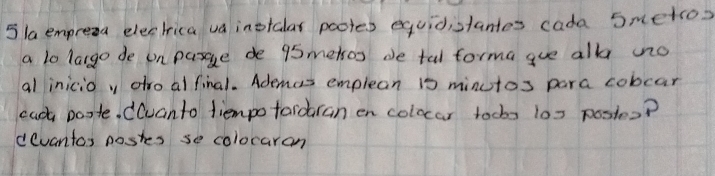 5 la empresa electrica va instalar postes equidistantes cada 5 metros
a lo largo de un parque de 95 metros de tal forma que alla uno
al inicio y otro al final. Ademas emplean 15 minutos para colocar
cada poste. ¿Cuanto tiempo tardaran en colocar todos los postes?
¿Cuantos postes se colocaran